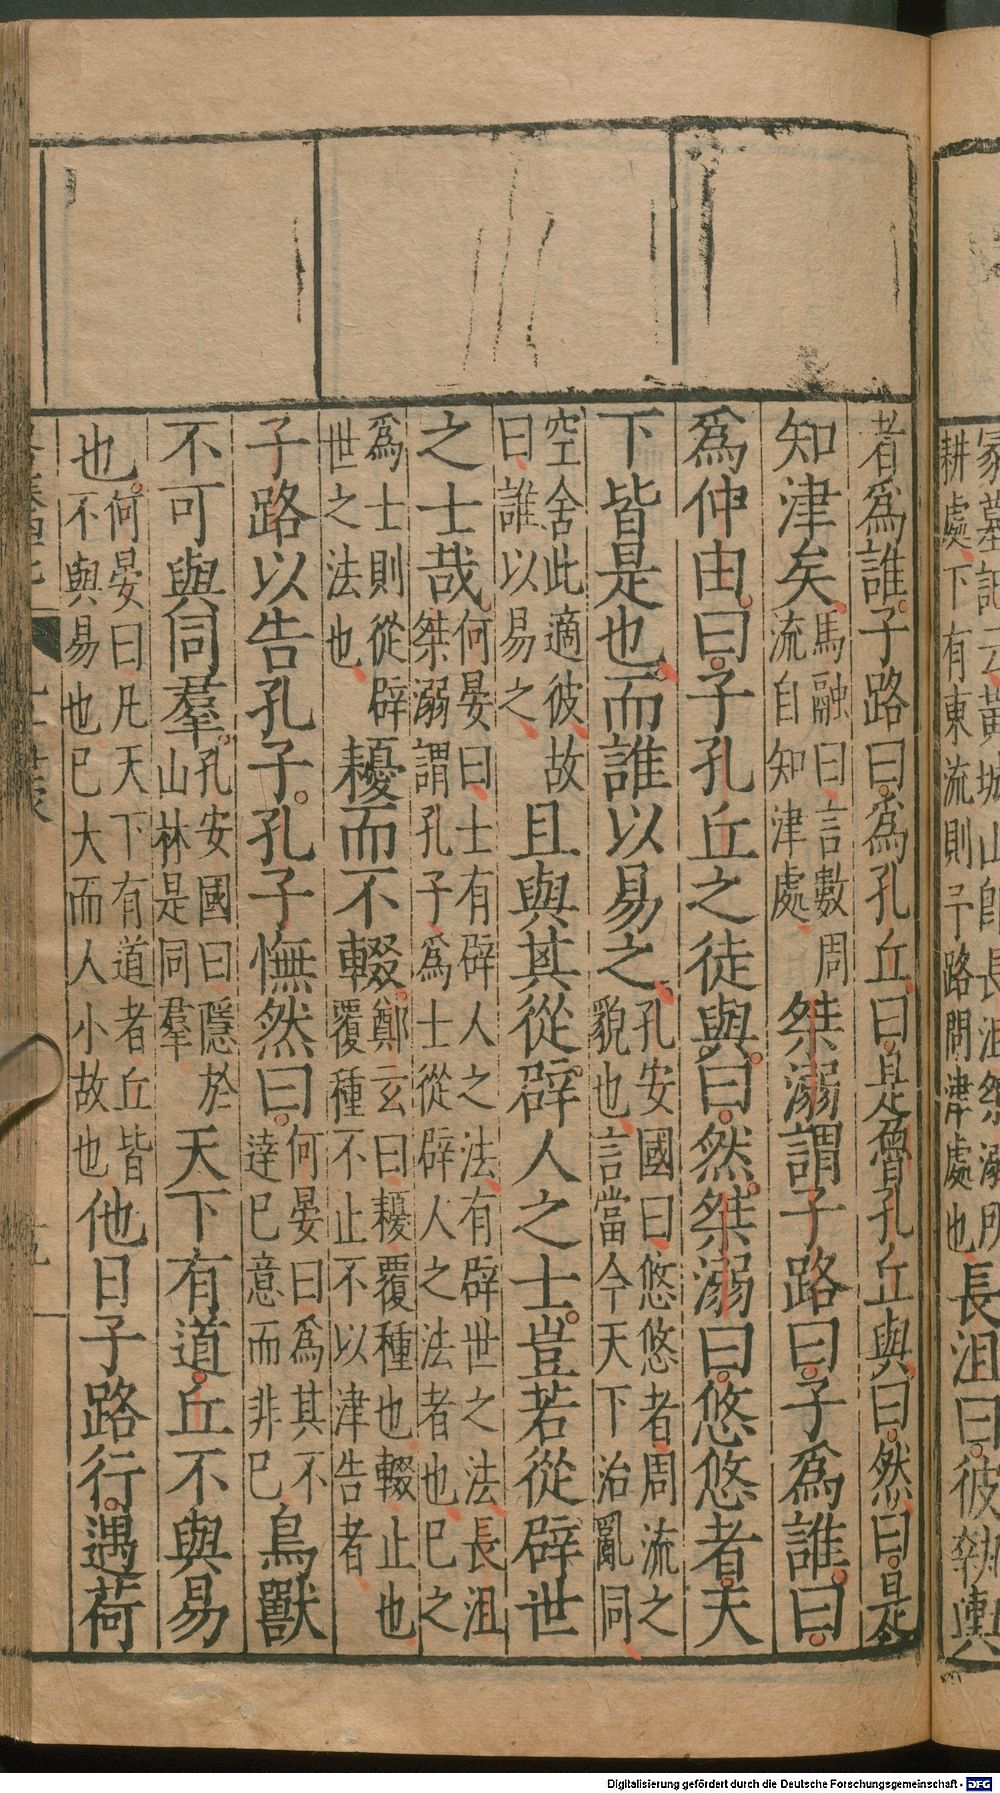 冢墓記云黃城山即長沮桀溺所
耕處下有東流則子路問津處也長沮曰彼執輿
者爲誰子路曰爲孔丘曰是魯孔丘與曰然曰是
知津矣馬融曰言數周
流自知津處桀溺謂子路曰子爲誰曰
爲仲由曰子孔丘之徒與曰然桀溺曰悠悠者天
下皆是也而誰以易之孔安國曰悠悠者周流之
貌也言當今天下治亂同
空舍此適彼故
曰誰以易之且與其從辟人之士豈若從辟世
之士哉何晏曰士有辟人之法有辟世之法長沮
桀溺謂孔子爲士從辟人之法者也已之
爲士則從辟
世之法也耰而不輟鄭玄曰耰覆種也輟止也
覆種不止不以津告者
子路以告孔子孔子憮然曰何晏曰爲其不
達已意而非已鳥獸
不可與同羣孔安國曰隱於
山林是同羣天下有道丘不與易
也何晏曰凡天下有道者丘皆
不與易也已大而人小故也他日子路行遇荷
Digitalisierung gefördert durch die Deutsche Forschungsgemeinschaft - DFG